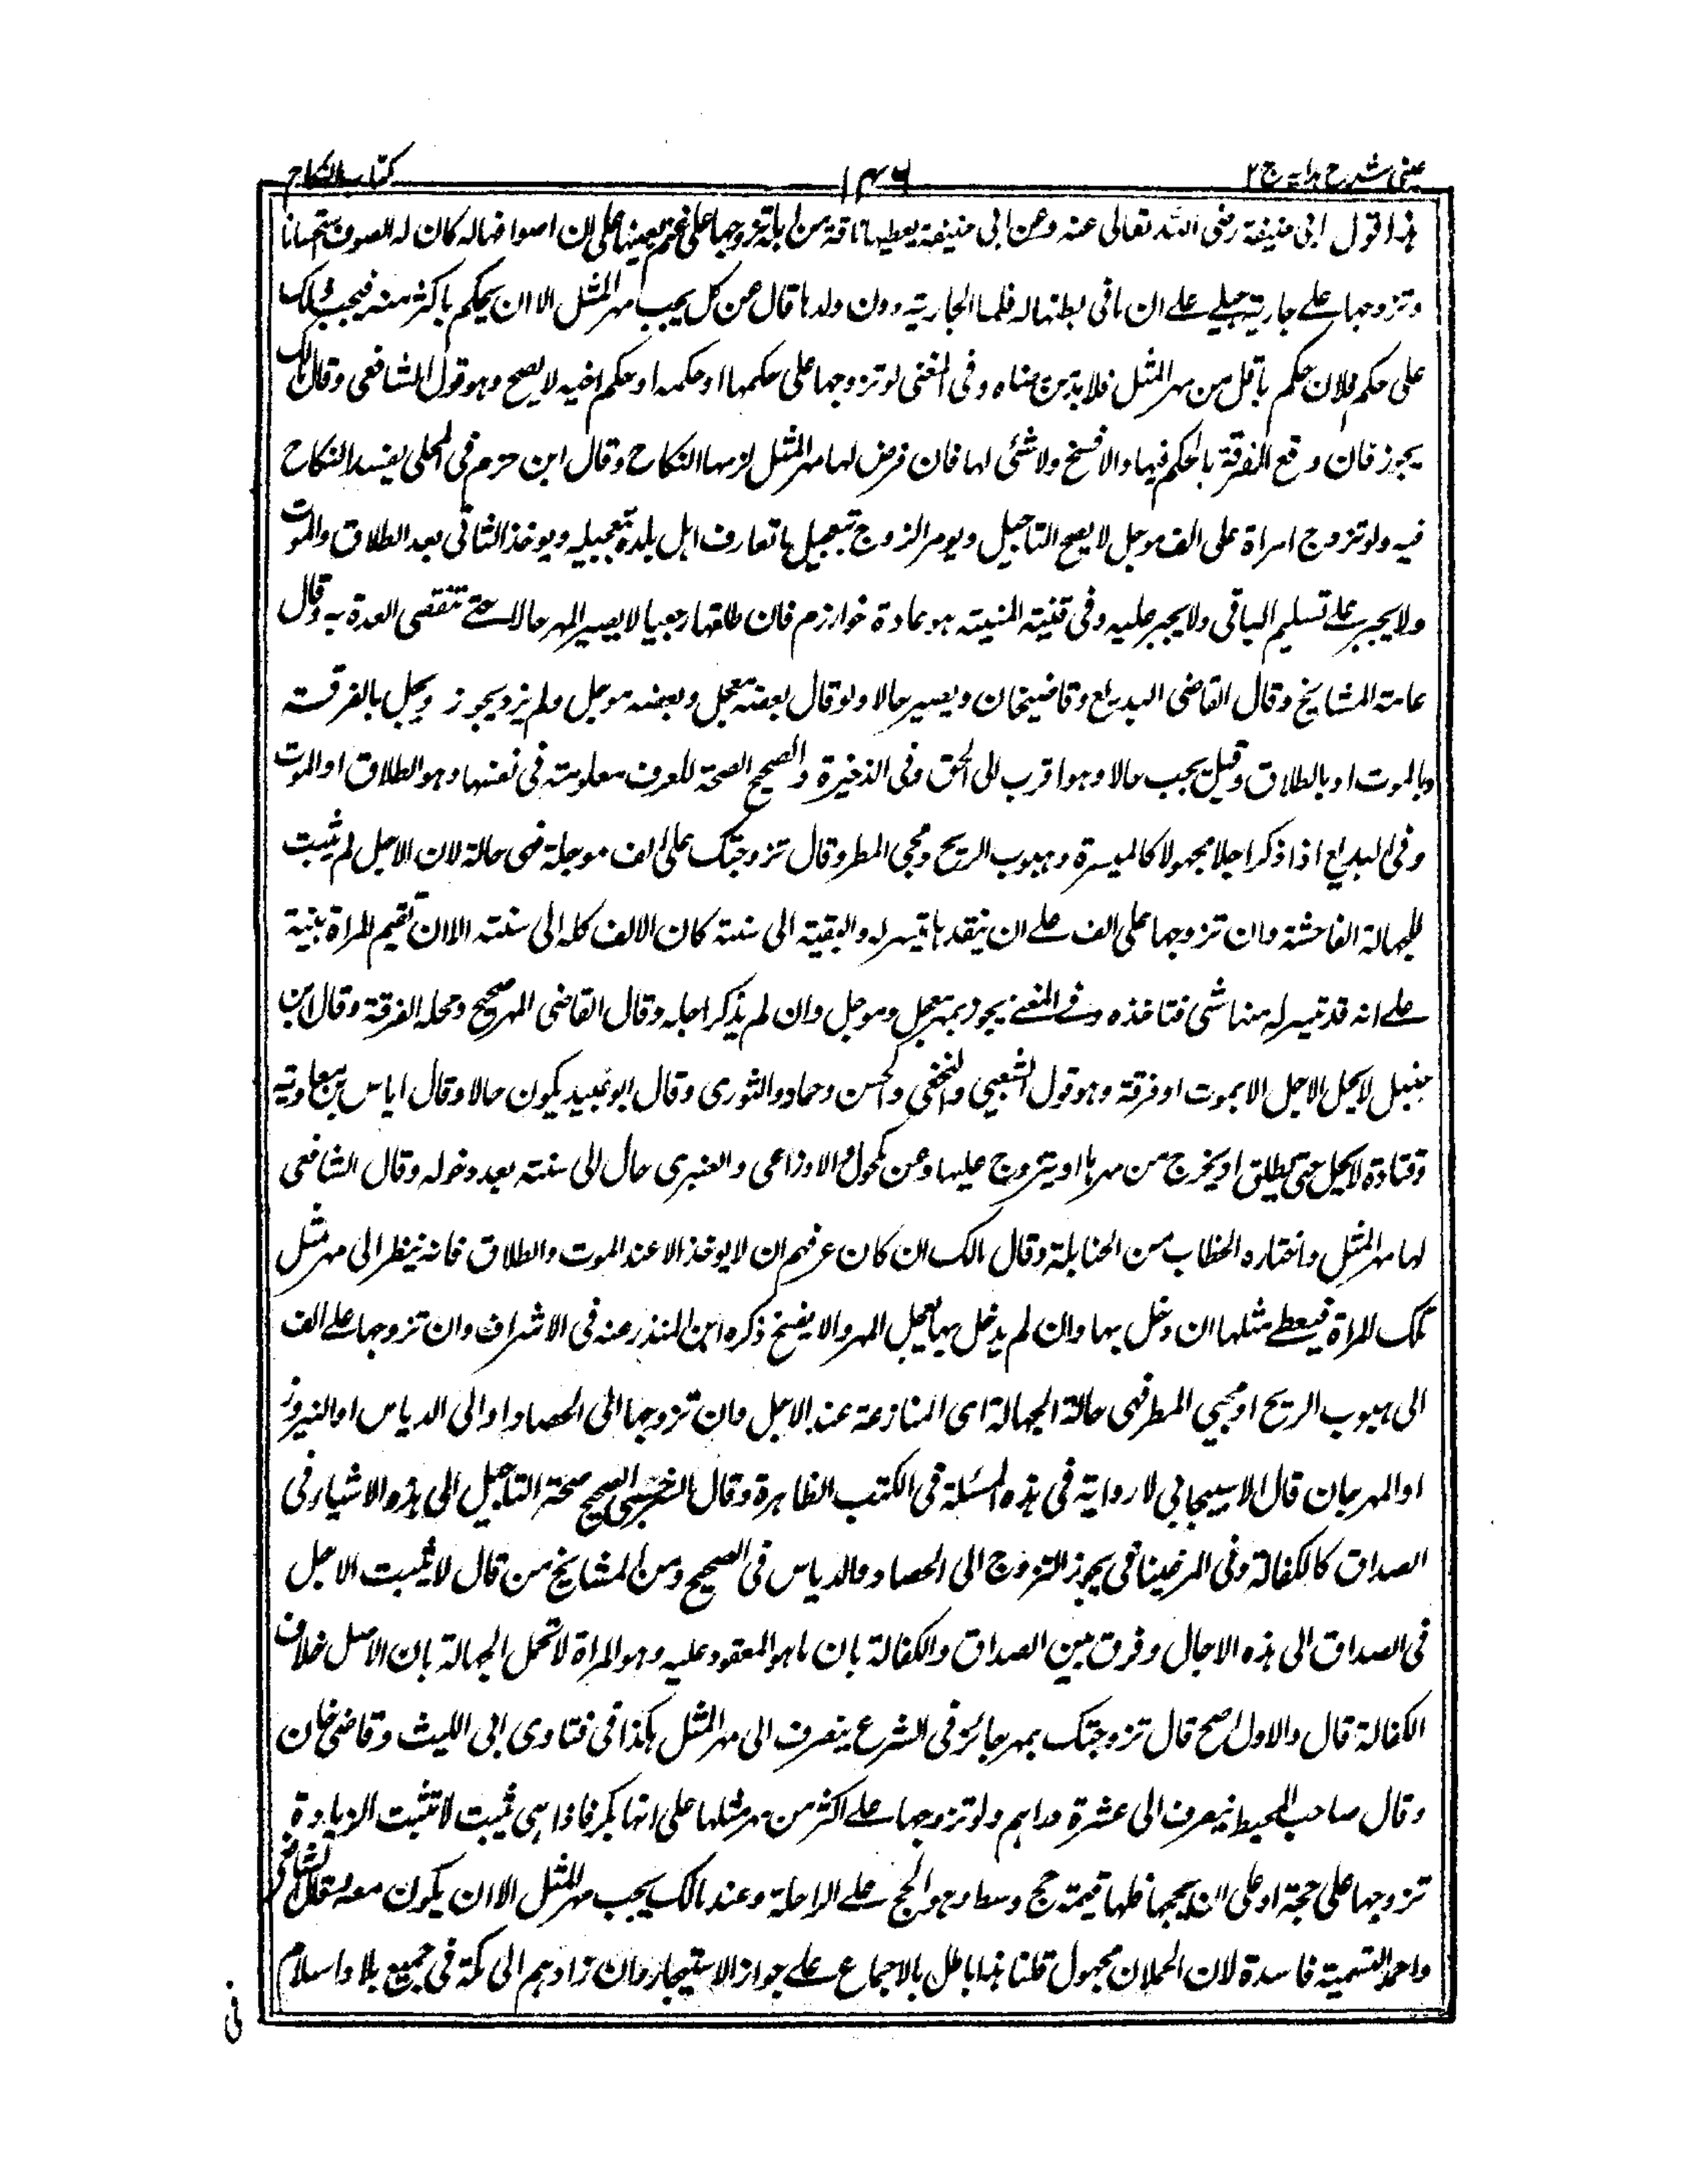 عینی شرح هدایه ج ۲
۱۳۶
کتاب النکاح
هذا قول ابی حنیفة رضی الله تعالی عنه وعن ابی حنیفة یعطیها ناقة من ابله تزوجها علی غنم بعینها علی ان اصوافها له کان له الصوف استحسانا
وتزوجها علے جاریة حبلے علے ان مافی بطنها له فلها الجاریة وولدها قال عن کل یجب مهر المثل الا ان یحکم باکثر منه فیجب
علی حکم فلان حکم باقل من مهر المثل فلا بد من رضاه وفی المغنی لو تزوجها علی حکمها او حکمه او حکم اخیه لا یصح وهو قول الشافعی وقال مالک
یجوز فان وقع الفرقة بالحکم فیها والا فسخ ولا شئی لها فان فرض لها مهر المثل لزمها النکاح وقال ابن حزم فی المحلی یفسد النکاح
فیه ولو تزوج امراة علی الف موجل لا یصح التاجیل ویومر الزوج بتعجیل ما تعارف اهل بلده تعجیله ویوخذ الثانی بعد الطلاق والموت
ولا یجبر علے تسلیم الباقی ولا یجبر علیه وفی قنیة المنیة هو عادة خوارزم فان طلقها رجعیا لا یصیر المهر حالا حتے تنقضی العدة به وقال
عامة المشایخ وقال القاضی البدیع وقاضیخان ویصیر حالا ولو قال بعضه معجل وبعضه موجل ولم یزد یجوز ویحل بالفرقة
وبالموت او بالطلاق وقیل یجب حالا وهو اقرب الی الحق وفی الذخیرة والصحیح الصحة للعرف معلومته فی نفسها وهو الطلاق او الموت
وفی البدایع اذا ذکر اجلا مجهولا کالمیسرة وهبوب الریح ومجی المطر وقال تزوجتک علی الف موجلة فهی حالة لان الاجل لم یثبت
للجهالة الفاحشة وان تزوجها علی الف علے ان ینقد ما تیسر له والبقیة الی سنة کان الالف کله الی سنته الا ان تقیم المراة بنیة
علے انه قد تیسر له منها شی فتاخذه وفے المغنے یجوز بمهر معجل وموجل وان لم یذکر اجله وقال القاضی المهر صحیح ومحله الفرقة وقال ابن
حنبل لا یحل الاجل الا بموت او فرقة وهو قول الشعبی والنخعی والحسن وحماد والثوری وقال ابو عبید یکون حالا وقال ایاس بن معاویة
وقتادة لا یحل حتی یطلق او یخرج من مهرها او یتزوج علیها وعن مکحول والاوزاعی والعنبری حال الی سنته بعد دخوله وقال الشافعی
لها مهر المثل واختاره الخطاب من الحنابلة وقال مالک ان کان عرفهم ان لا یوخذ الا عند الموت والطلاق فانه ینظر الی مهر مثل
تلک المراة فیعطے مثلها ان دخل بها وان لم یدخل بها یعجل المهر والا یفسخ ذکره ابن المنذر عنه فی الاشراف وان تزوجها علے الف
الی هبوب الریح او مجیی المطر فهی حالة الجهالة ای المنازعة عند الاجل وان تزوجها الی الحصاد او الی الدیاس او النیروز
او المهرجان قال الاسبیجابی لا روایة فی هذه المسئلة فی الکتب الظاهرة وقال السرخسی الصحیح صحة التاجیل الی هذه الاشیاء فی
الصداق کالکفالة وفی المرغینانی یجوز التزوج الی الحصاد والدیاس فی الصحیح ومن المشایخ من قال لا یثبت الاجل
فی الصداق الی هذه الاجال وفرق بین الصداق والکفالة بان ماهو المعقود علیه وهو المراة لا تحمل الجهالة بان الاصل خلاف
الکفالة قال والاول اصح قال تزوجتک بمهر جائز فی الشرع ینصرف الی مهر المثل هکذا فی فتاوی ابی اللیث وقاضی خان
وقال صاحب المحیط ینصرف الی عشرة دراهم ولو تزوجها علے اکثر من مهر مثلها علی انها بکر فاذا هی ثیبت لا تثبت الزیادة
تزوجها علی حجة او علی ان یحجها فلها قیمة حج وسط وهو الحج علے الراحلة وعند مالک یجب مهر المثل الا ان یکون معه وقال الشافعی
واحمد التسمیة فاسدة لان الحملان مجهول قلنا هذا باطل بالاجماع علے جواز الاستیجار وان زادهم الی مکة فی جمیع بلاد اسلام
فی